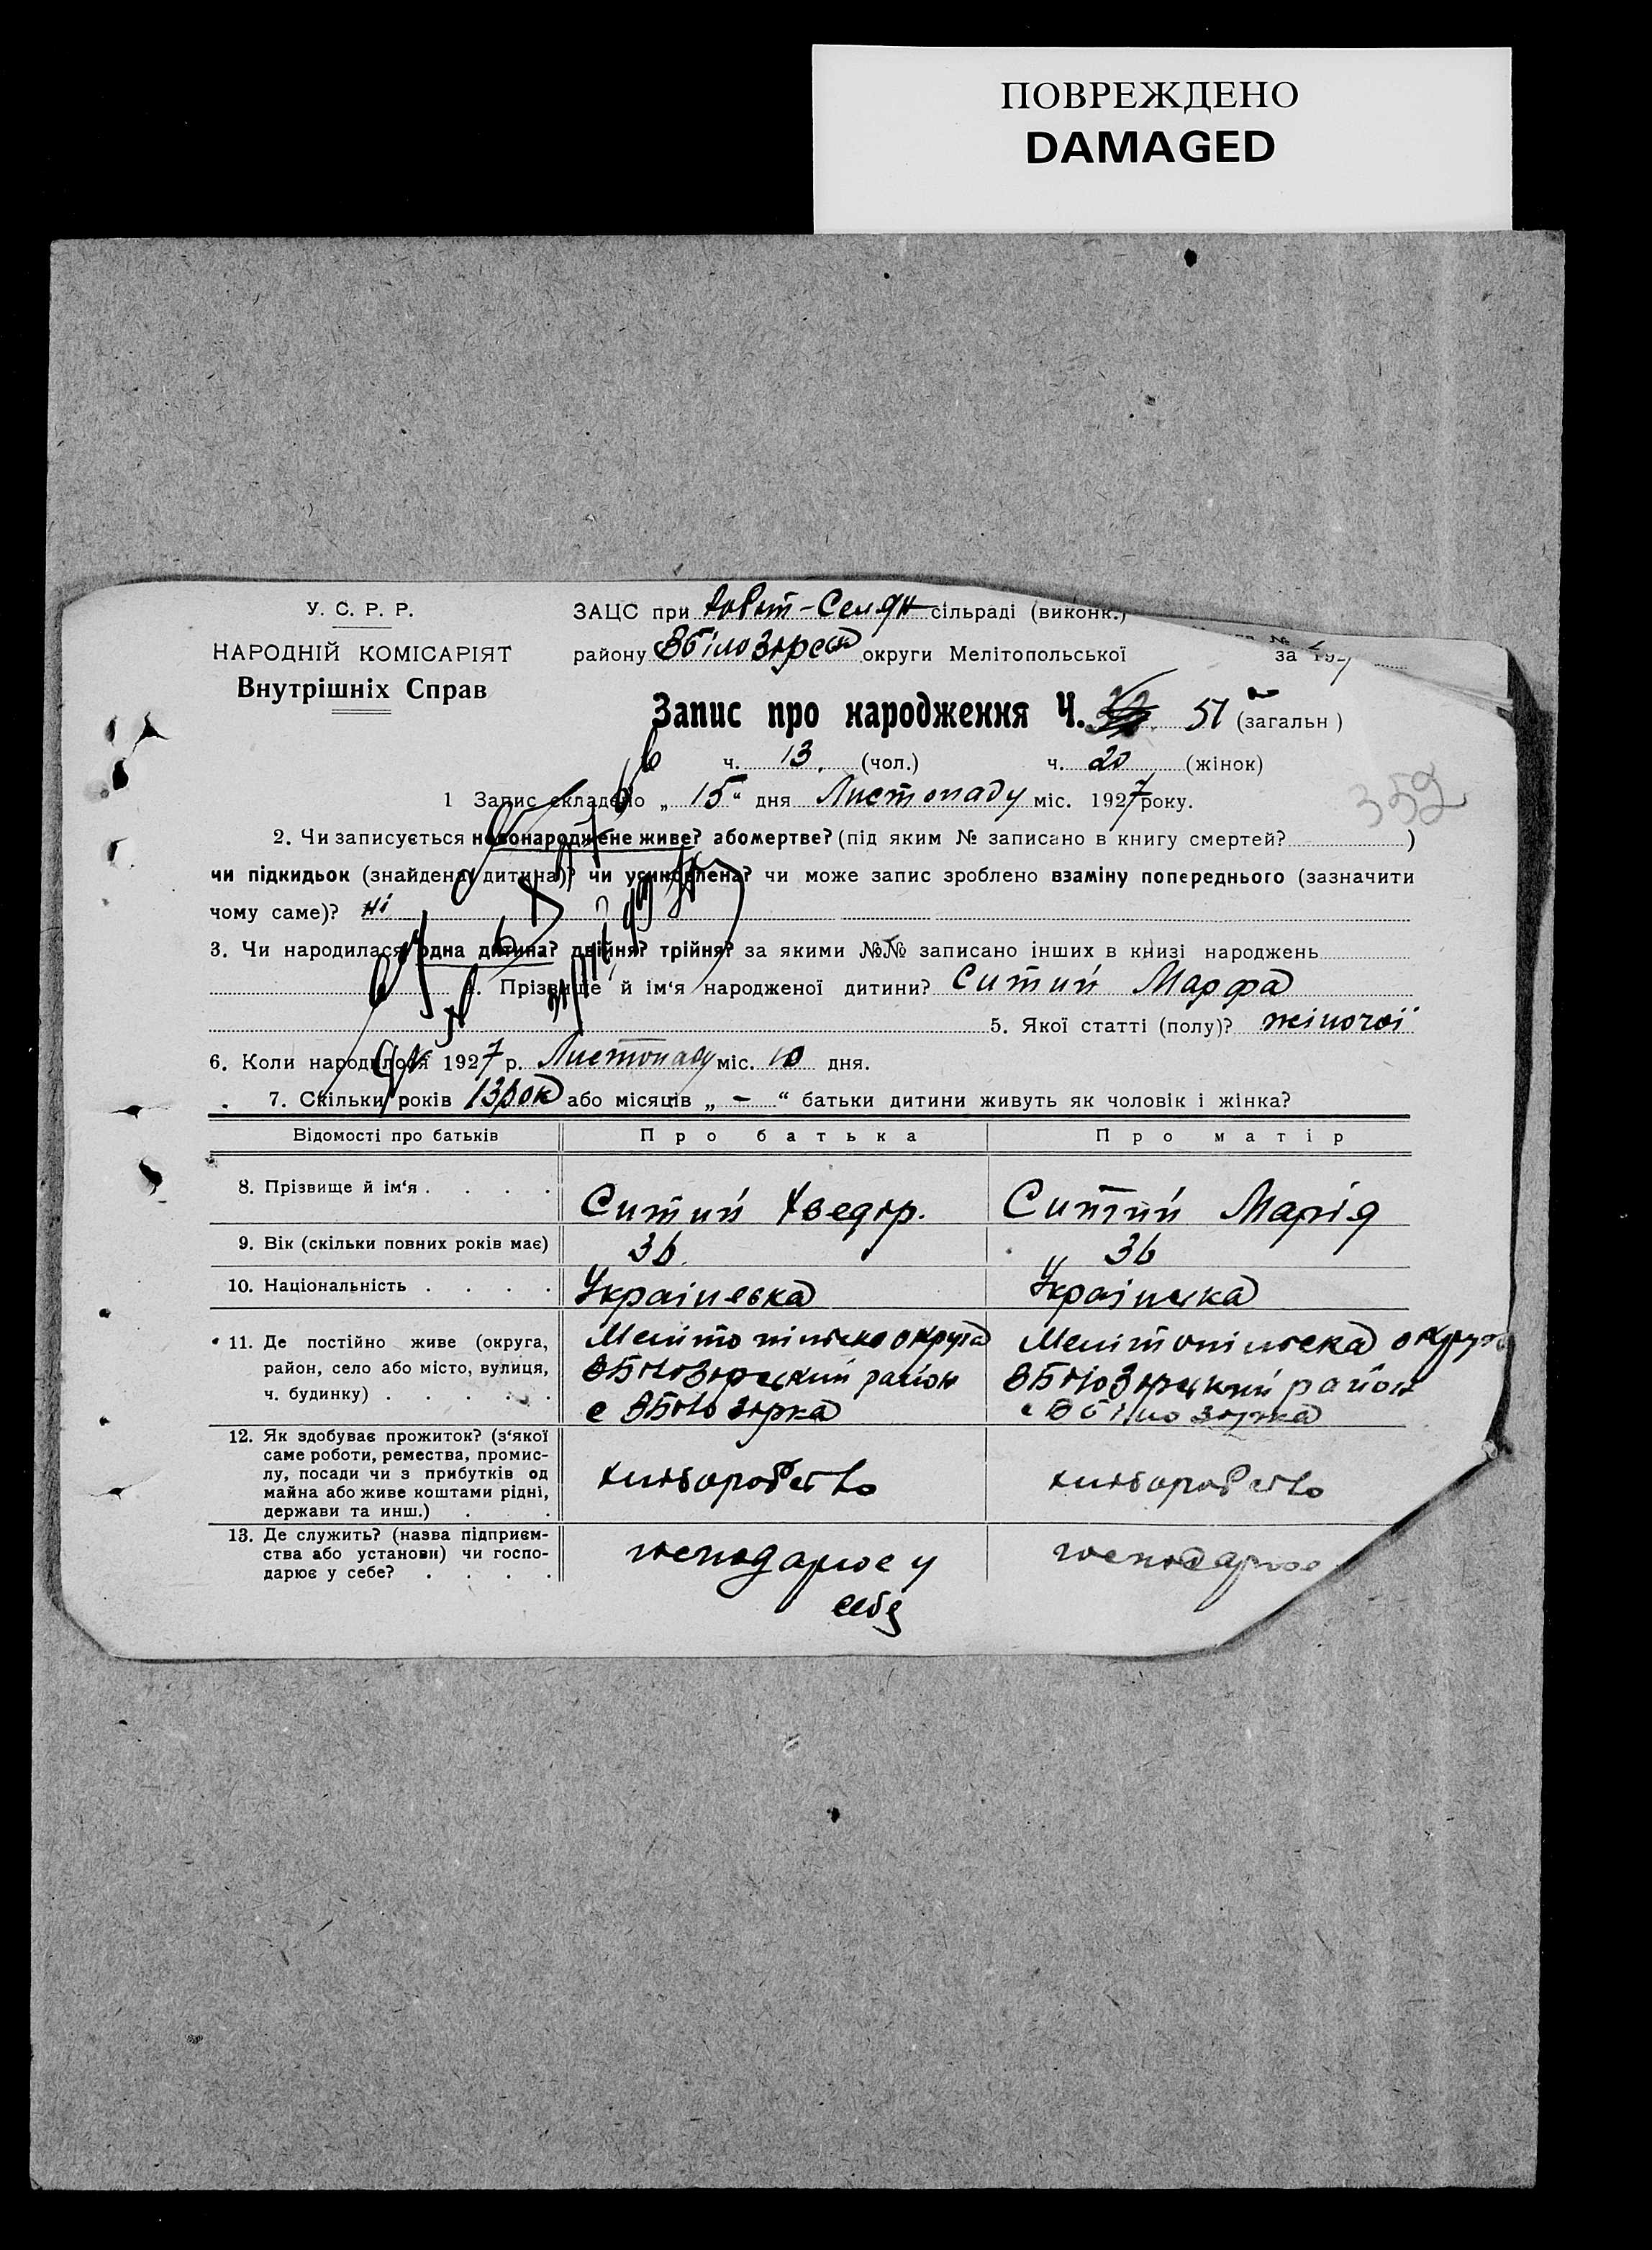 ПОВРЕЖДЕНО
DAMAGED
У. С. Р. Р.
НАРОДНІЙ КОМІСАРІЯТ
Внутрішніх Справ
ЗАЦС при сільраді (виконк.)
району Вбілозерск округи Мелітопольської
за 192
Запис про народження Ч. 51 (загальн )
ч. 13. (чол.) ч. 20 (жінок)
352
1 Запис складено „ 15 “ дня Листопаду міс. 1927 року.
2. Чи записується новонароджене живе? або мертве? (під яким № записано в книгу смертей? )
чи підкидьок (знайдена дитина)? чи усиновлена? чи може запис зроблено взаміну попереднього (зазначити
чому саме)? ні
3. Чи народилася одна дитина? двійня? трійня? за якими №№ записано інших в книзі народжень
4. Прізвище й ім‘я народженої дитини? Ситий Марфа
5. Якої статті (полу)? жіночої
6. Коли народилося 1927 р. Листопаду міс. 10 дня.
7. Скільки років 13 рок або місяців „ - “ батьки дитини живуть як чоловік і жінка?
Відомості про батьків Про батька Про матір
8. Прізвище й ім‘я . . . . Ситий Хведор. Ситий Марія
9. Вік (скільки повних років має) 36. 36
10. Національність . . . . Українська Українка
11. Де постійно живе (округа, район, село або місто, вулиця, ч. будинку) . . . . .
Мелітопільська округа Мелітопільська округа
Вбілозерський район Вбілозерський район
с Вбілозерка с Вбілозерка
12. Як здобуває прожиток? (з‘якої саме роботи, ремества, промислу, посади чи з прибутків од майна або живе коштами рідні, держави та инш.) . .
хліборобство хліборобство
13. Де служить? (назва підприємства або установи) чи господарює у себе? . . . .
господарює у господарює
себе